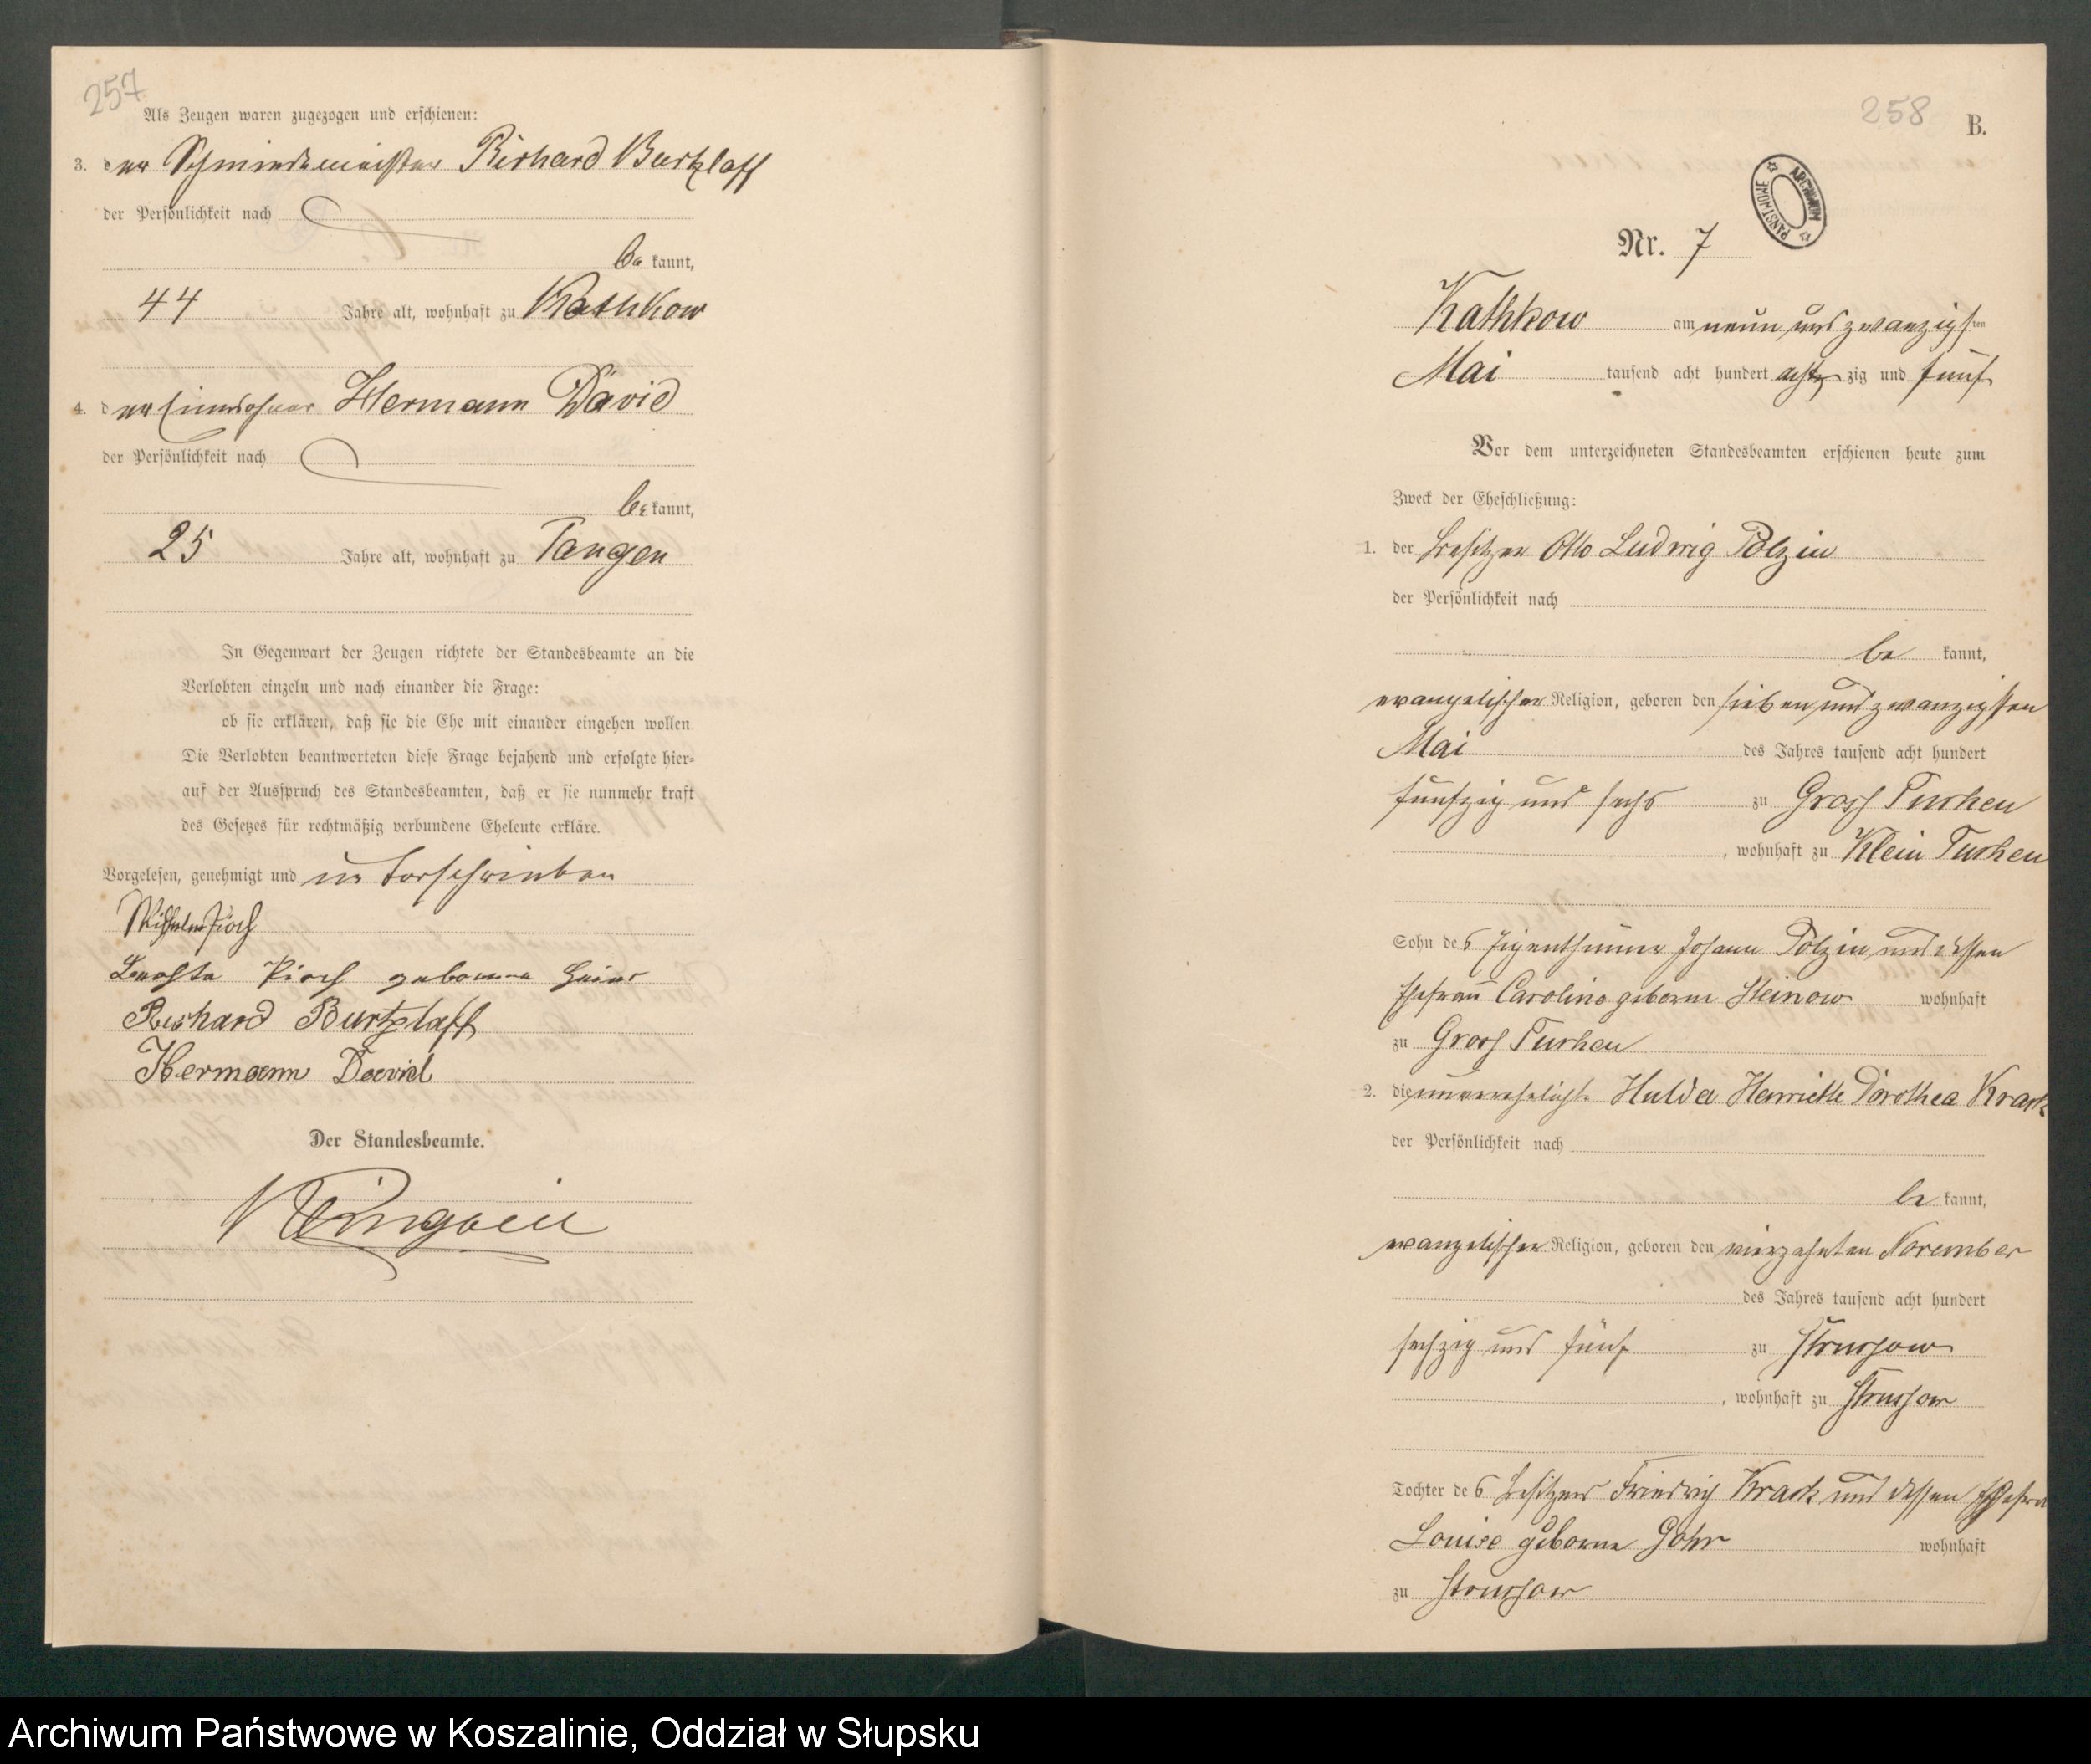 257
Als Zeugen waren zugezogen und erschienen:
3. der Schmiedemeister Richard Burtzlaff
der Persönlichkeit nach
be kannt,
44 Jahre alt, wohnhaft zu Kathkow
4. der Einwohner Hermann David
der Persönlichkeit nach
be kannt,
25 Jahre alt, wohnhaft zu Tangen
In Gegenwart der Zeugen richtete der Standesbeamte an die
Verlobten einzeln und nach einander die Frage:
ob sie erklären, daß sie die Ehe mit einander eingehen wollen.
Die Verlobten beantworteten diese Frage bejahend und erfolgte hier-
auf der Ausspruch des Standesbeamten, daß er sie nunmehr kraft
des Gesetzes für rechtmäßig verbundene Eheleute erkläre.
Vorgelesen, genehmigt und unterschrieben
Wilhelm Pioch
Pioch geborene
Richard Burtzlaff
Hermann David
Der Standesbeamte.
258
B.
ARCHIWUM PAŃSTWOWE
Nr. 7
Kathkow am neun und zwanzigsten
Mai tausend acht hundert achtzig und fünf
Vor dem unterzeichneten Standesbeamten erschienen heute zum
Zweck der Eheschließung:
1. der Besitzer Otto Ludwig Polzin
der Persönlichkeit nach
be kannt,
evangelischer Religion, geboren den sieben und zwanzigsten
Mai des Jahres tausend acht hundert
fünfzig und sechs zu Gross Tuchen
, wohnhaft zu Klein Tuchen
Sohn des Eigenthümer Johann Polzin und dessen
Ehefrau Caroline geborne Heinow wohnhaft
zu Gross Tuchen
2. die unverehelichte Hulda Henriette Dorothea Krack
der Persönlichkeit nach
be kannt,
evangelischer Religion, geboren den vierzehnten November
des Jahres tausend acht hundert
sechzig und fünf zu Strussow
, wohnhaft zu Strussow
Tochter des Besitzers Friedrich Krack und dessen Ehefrau
Louise geborne Gohr wohnhaft
zu Strussow
Archiwum Państwowe w Koszalinie, Oddział w Słupsku